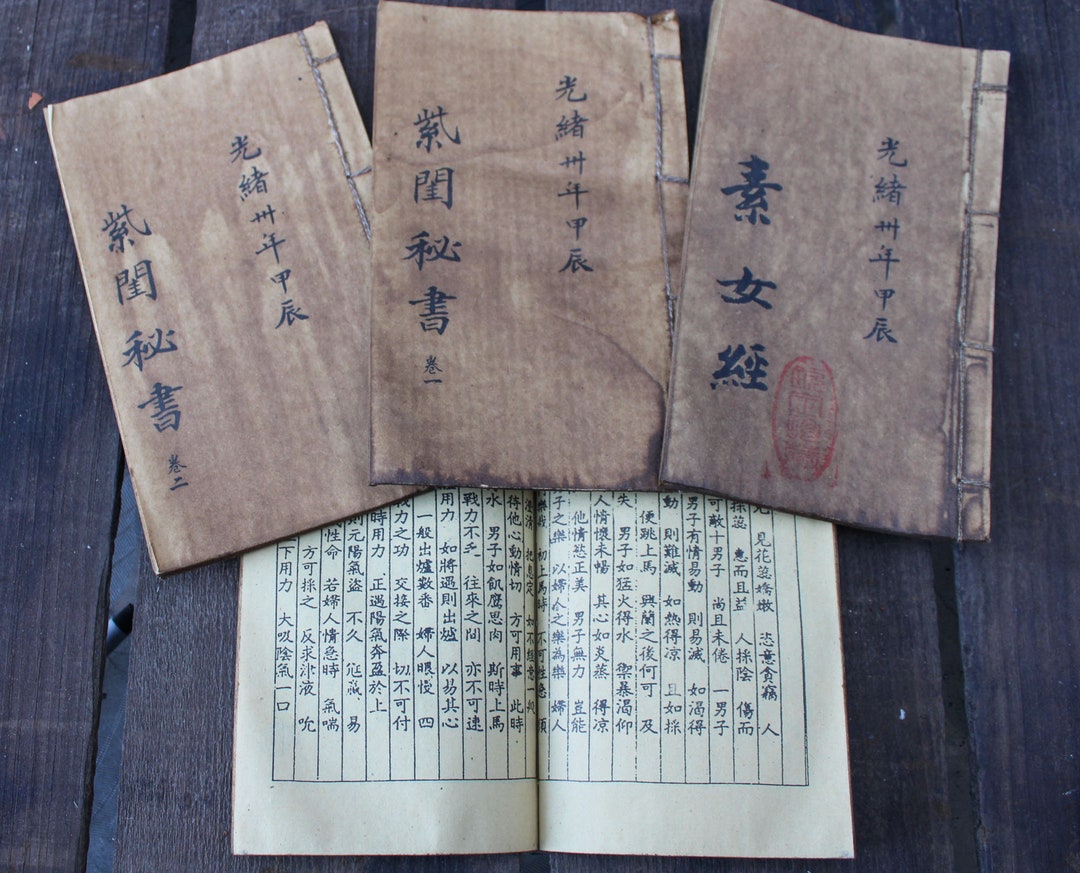 光緒卅年甲辰
素女經
光緒卅年甲辰
紫閨秘書
卷一
光緒卅年甲辰
紫閨秘書
卷二
見花蕊嬌嫩 恣意貪竊 人
採蕊 惠而且益 人採陰 傷而
可敵十男子 尚且未倦 一男子
男子有情易動 則易滅 如渴得
動 則難滅 如熱得凉 且如採
便跳上馬 興闌之後何可 及
失 男子如猛火得水 禦暴渴仰
人情懷未暢 其心如炎蒸 得凉
他情慾正美 男子無力 豈能
子之樂 以婦人之樂為樂 婦人
初上馬時 不可性急 須
把息定 如不緩意一般
待他心動情切 方可用事 此時
水 男子如飢鷹思肉 斯時上馬
戰力不乏 往來之間 亦不可速
用力 如將遇則出爐 以易其心
一般出爐數番 婦人眼慢 四
戰力之功 交接之際 切不可付
時用力 正遇陽氣奔盈於上
則元陽氣盜 不久 易
性命 若婦人情急時 氣喘
方可採之 反求津液 吮
下用力 大吸陰氣一口